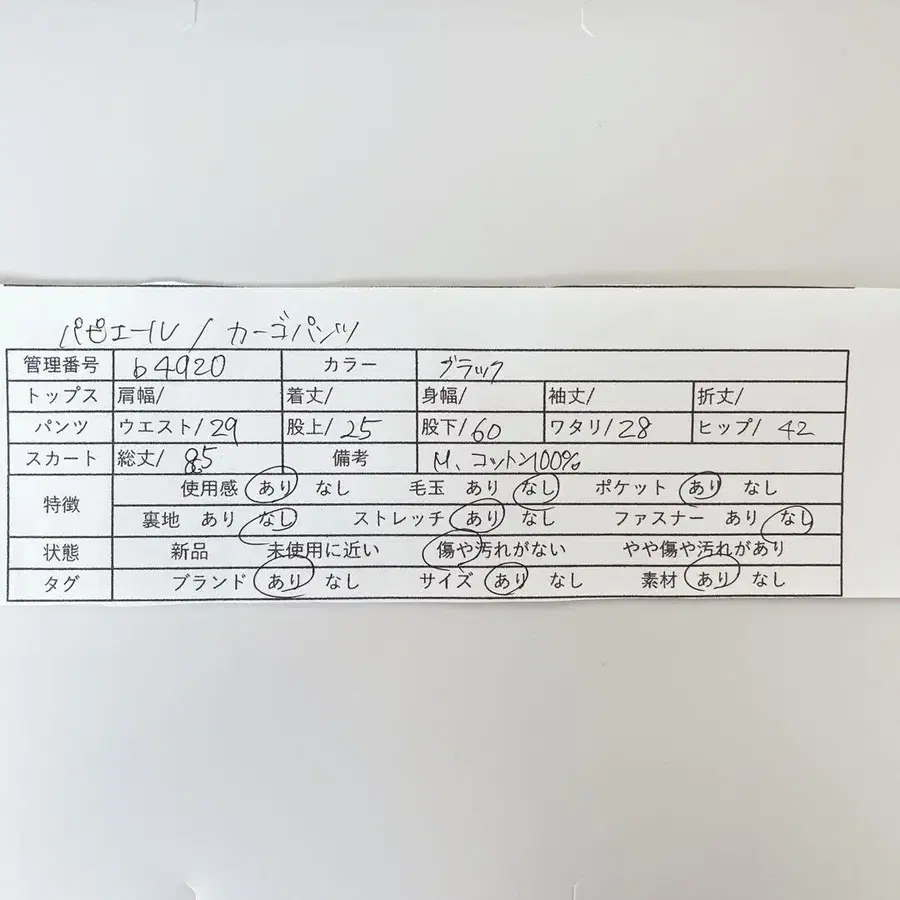 パピエール/カーゴパンツ
管理番号 b4920 カラー ブラック
トップス 肩幅/ 着丈/ 身幅/ 袖丈/ 折丈/
パンツ ウエスト/29 股上/25 股下/60 ワタリ/28 ヒップ/42
スカート 総丈/85 備考 M、コットン100%
特徴 使用感 あり なし 毛玉 あり なし ポケット あり なし
裏地 あり なし ストレッチ あり なし ファスナー あり なし
状態 新品 未使用に近い 傷や汚れがない やや傷や汚れがあり
タグ ブランド あり なし サイズ あり なし 素材 あり なし